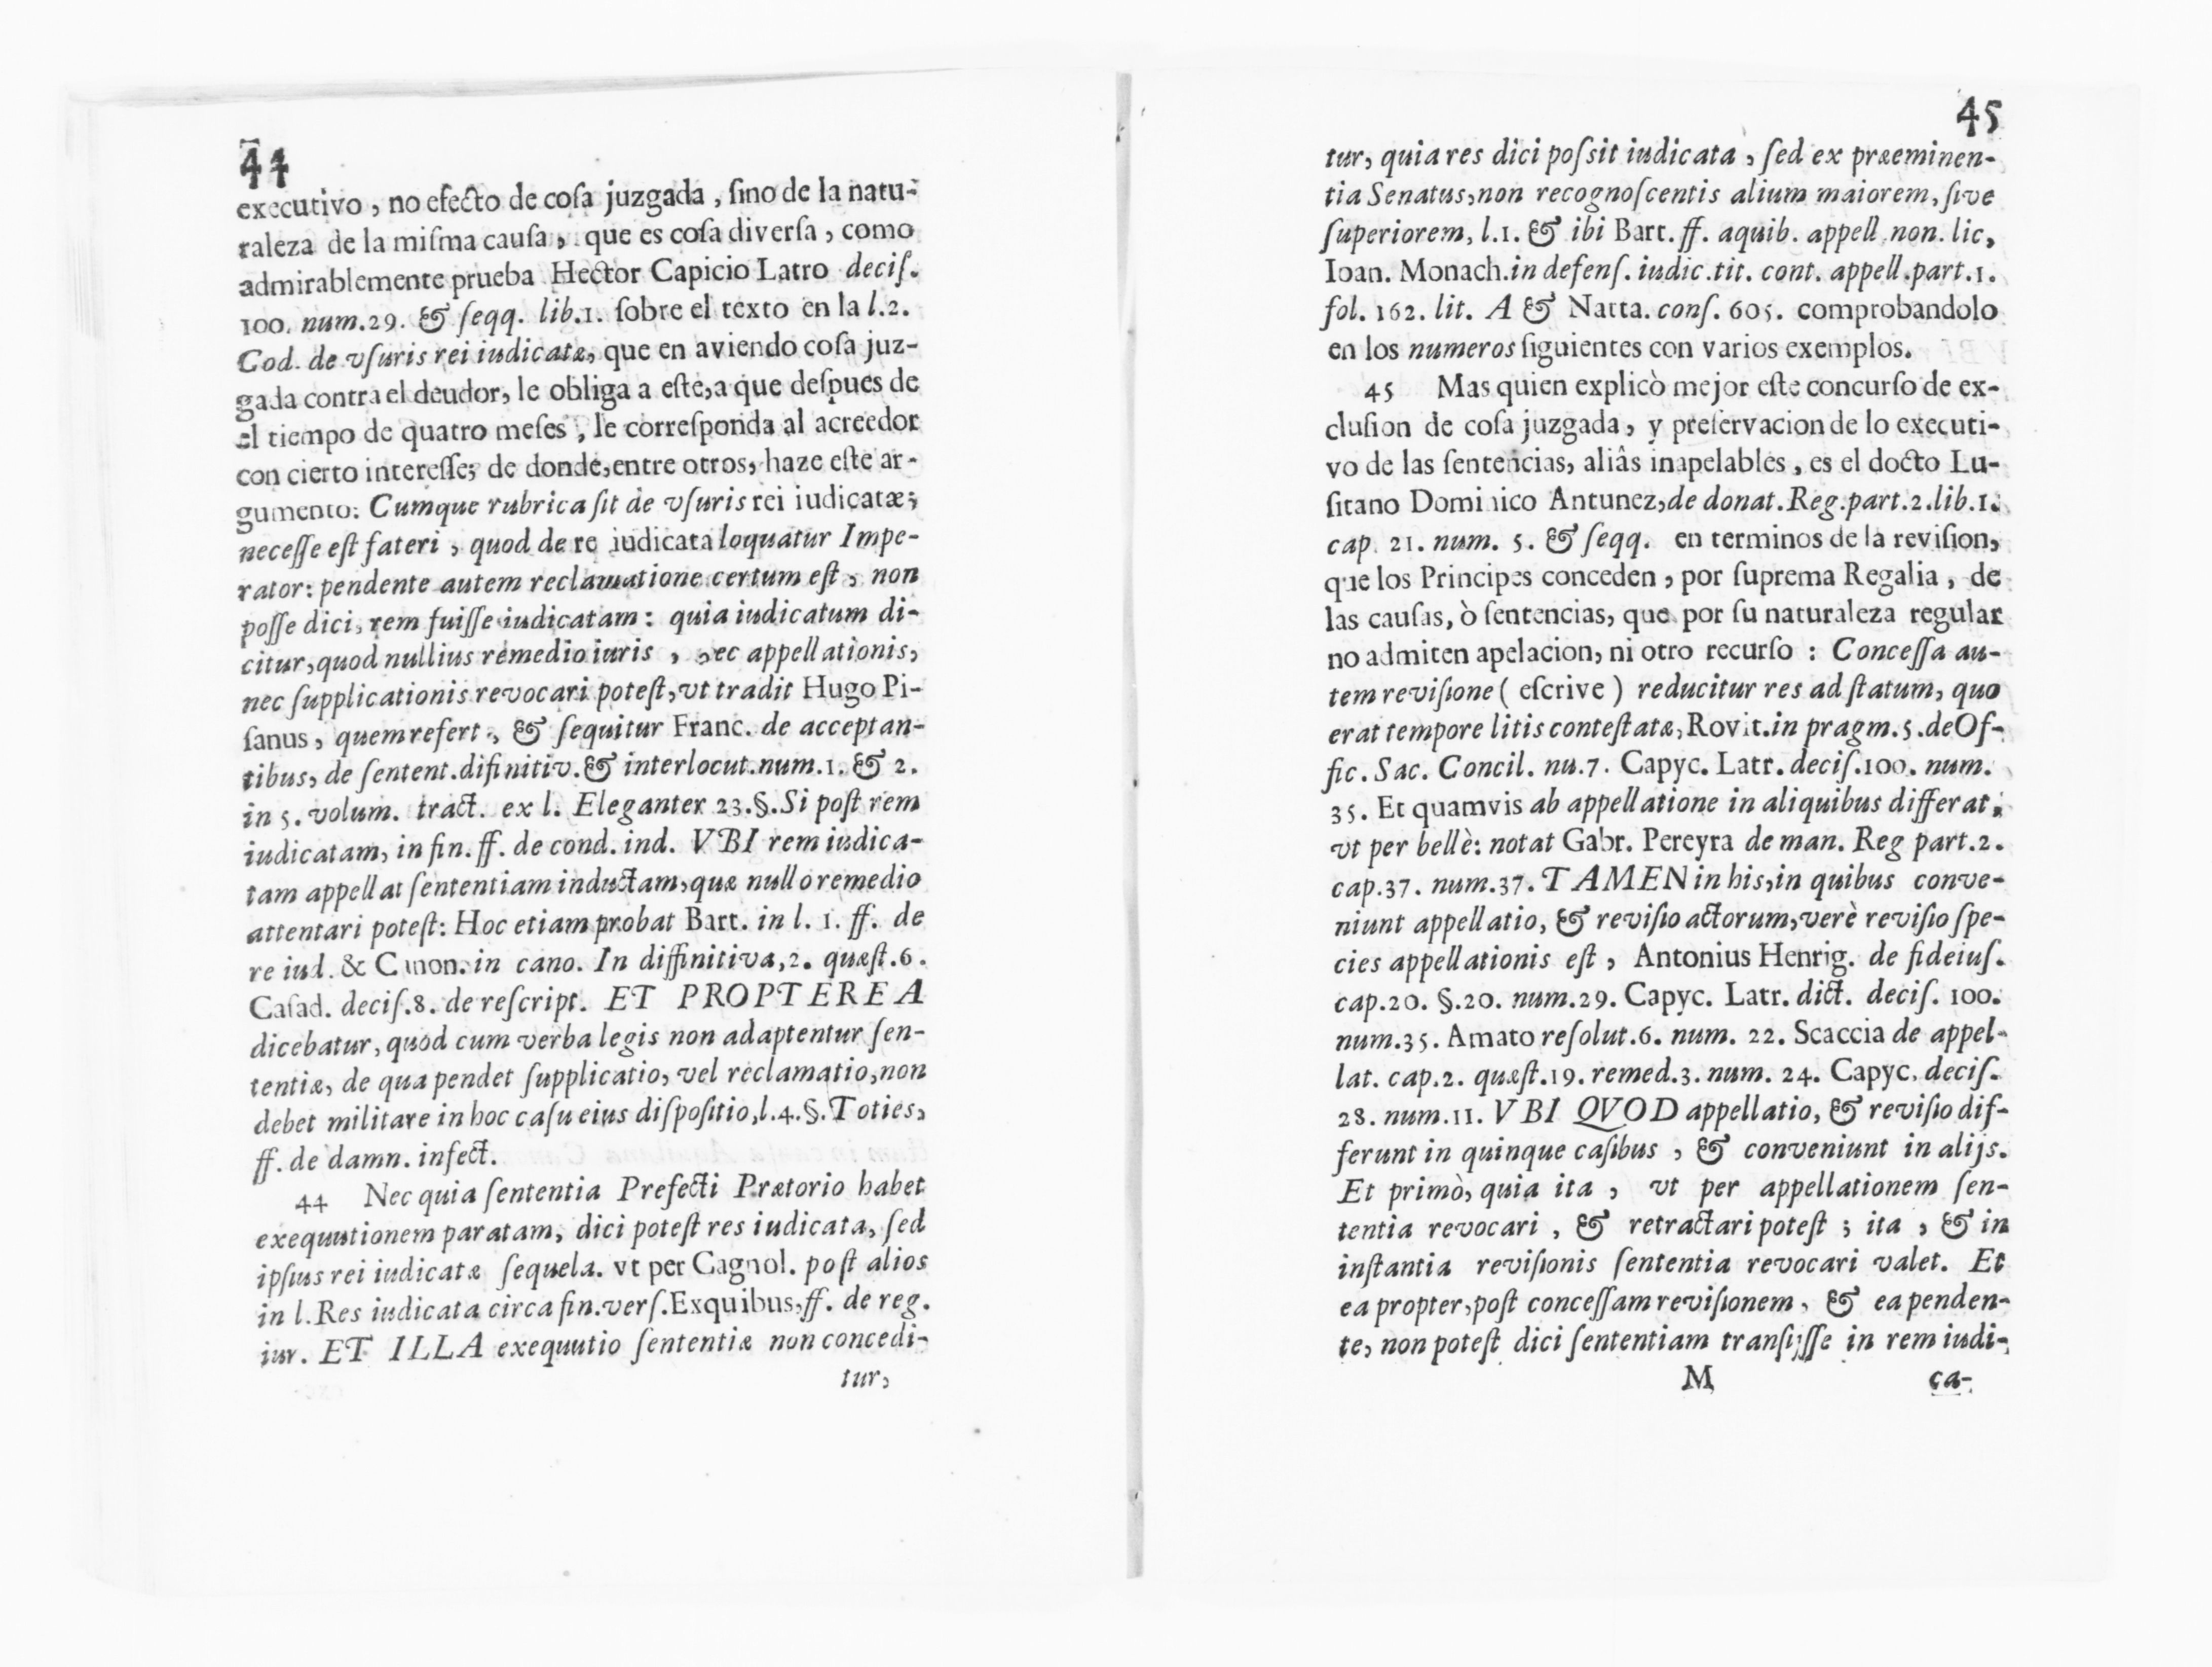 44
executivo, no efecto de coſa juzgada, ſino de la natu-
raleza de la miſma cauſa, que es coſa diverſa, como
admirablemente prueba Hector Capicio Latro deciſ.
100. num.29. & ſeqq. lib.1. ſobre el texto en la l.2.
Cod. de vſuris rei iudicatæ, que en aviendo coſa juz-
gada contra el deudor, le obliga a eſte, a que deſpues de
el tiempo de quatro meſes, le correſponda al acreedor
con cierto intereſſe; de donde, entre otros, haze eſte ar-
gumento: Cumque rubrica ſit de vſuris rei iudicatæ;
neceſſe eſt fateri, quod de re iudicata loquatur Impe-
rator: pendente autem reclamatione certum eſt, non
poſſe dici, rem fuiſſe iudicatam: quia iudicatum di-
citur, quod nullius remedio iuris, nec appellationis,
nec ſupplicationis revocari poteſt, vt tradit Hugo Pi-
ſanus, quem refert, & ſequitur Franc. de acceptan-
tibus, de ſentent.difinitiv. & interlocut.num.1. & 2.
in 5. volum. tract. ex l. Eleganter 23.§.Si poſt rem
iudicatam, in fin. ff. de cond. ind. VBI rem iudica-
tam appellat ſententiam inductam, quæ nullo remedio
attentari poteſt: Hoc etiam probat Bart. in l. 1. ff. de
re iud. & Canon. in cano. In diffinitiva, 2. quæſt.6.
Caſad. deciſ.8. de reſcript. ET PROPTEREA
dicebatur, quod cum verba legis non adaptentur ſen-
tentiæ, de qua pendet ſupplicatio, vel reclamatio, non
debet militare in hoc caſu eius diſpoſitio, l.4.§.Toties,
ff. de damn. infect.
44 Nec quia ſententia Prefecti Prætorio habet
exequutionem paratam, dici poteſt res iudicata, ſed
ipſius rei iudicatæ ſequela. vt per Cagnol. poſt alios
in l. Res iudicata circa fin.verſ.Exquibus, ff. de reg.
iur. ET ILLA exequutio ſententiæ non concedi-
tur,
45
tur, quia res dici poſsit iudicata, ſed ex præeminen-
tia Senatus, non recognoſcentis alium maiorem, ſive
ſuperiorem, l.1. & ibi Bart. ff. aquib. appell. non. lic,
Ioan. Monach. in defenſ. iudic. tit. cont. appell. part.1.
fol. 162. lit. A & Natta. conſ. 605. comprobandolo
en los numeros ſiguientes con varios exemplos.
45 Mas quien explicò mejor eſte concurſo de ex-
cluſion de coſa juzgada, y preſervacion de lo executi-
vo de las ſentencias, aliâs inapelables, es el docto Lu-
ſitano Dominico Antunez, de donat. Reg.part.2.lib.1.
cap. 21. num. 5. & ſeqq. en terminos de la reviſion,
que los Principes conceden, por ſuprema Regalia, de
las cauſas, ò ſentencias, que por ſu naturaleza regular
no admiten apelacion, ni otro recurſo : Conceſſa au-
tem reviſione ( eſcrive ) reducitur res ad ſtatum, quo
erat tempore litis conteſtatæ, Rovit. in pragm.5. de Of-
fic. Sac. Concil. nu.7. Capyc. Latr. deciſ.100. num.
35. Et quamvis ab appellatione in aliquibus differat,
vt per bellè: notat Gabr. Pereyra de man. Reg part.2.
cap.37. num.37. TAMEN in his, in quibus conve-
niunt appellatio, & reviſio actorum, verè reviſio ſpe-
cies appellationis eſt, Antonius Henrig. de fideiuſ.
cap.20. §.20. num.29. Capyc. Latr. dict. deciſ. 100.
num.35. Amato reſolut.6. num. 22. Scaccia de appel-
lat. cap.2. quæſt.19. remed.3. num. 24. Capyc. deciſ.
28. num.11. VBI QVOD appellatio, & reviſio dif-
ferunt in quinque caſibus, & conveniunt in alijs.
Et primò, quia ita, vt per appellationem ſen-
tentia revocari, & retractari poteſt; ita, & in
inſtantia reviſionis ſententia revocari valet. Et
ea propter, poſt conceſſam reviſionem, & ea penden-
te, non poteſt dici ſententiam tranſijſſe in rem iudi-
M ca-